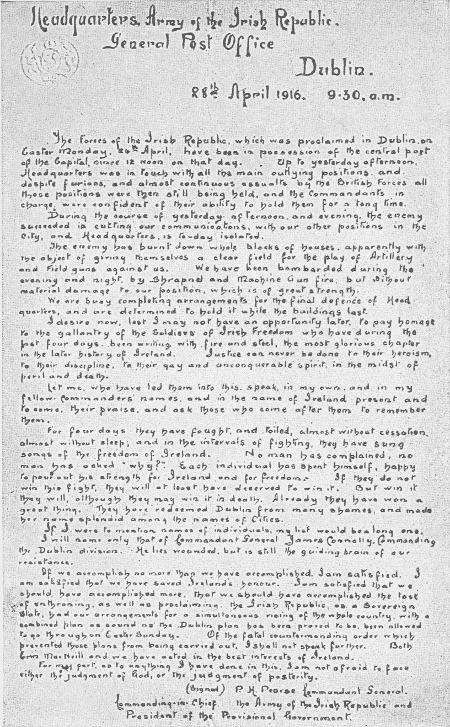 Headquarters, Army of the Irish Republic.
General Post Office
Dublin.
28th April 1916. 9-30. a.m.
The Forces of the Irish Republic, which was proclaimed in Dublin, on
Easter Monday, 24th April, have been in possession of the central part
of the Capital, since 12 noon on that day. Up to yesterday afternoon,
Headquarters was in touch with all the main outlying positions, and,
despite furious, and almost continuous assaults by the British Forces all
those positions were then still being held, and the Commandants in
charge, were confident of their ability to hold them for a long time.
During the course of yesterday afternoon, and evening, the enemy
succeeded in cutting our communications, with our other positions in the
City, and Headquarters is to-day isolated.
The enemy has burnt down whole blocks of houses, apparently with
the object of giving themselves a clear field for the play of Artillery
and Field guns against us. We have been bombarded during the
evening and night, by Shrapnel and Machine Gun fire, but without
material damage to our position, which is of great strength.
We are busy completing arrangements for the final defence of Head
quarters, and are determined to hold it while the buildings last.
I desire now, lest I may not have an opportunity later, to pay homage
to the gallantry of the Soldiers of Irish Freedom who have during the
past four days, been writing with fire and steel, the most glorious chapter
in the later history of Ireland. Justice can never be done to their heroism,
to their discipline, to their gay and unconquerable spirit, in the midst of
peril and death.
Let me, who have led them into this, speak, in my own, and in my
fellow-commanders' names, and in the name of Ireland present and
to come, their praise, and ask those who come after them to remember
them.
For four days they have fought, and toiled, almost without cessation,
almost without sleep; and in the intervals of fighting, they have sung
songs of the freedom of Ireland. No man has complained, no
man has asked "why?". Each individual has spent himself, happy
to pour out his strength for Ireland and for freedom. If they do not
win this fight, they will at least have deserved to win it. But win it
they will, although they may win it in death. Already they have won a
great thing. They have redeemed Dublin from many shames, and made
her name splendid among the names of Cities.
If I were to mention names of individuals, my list would be a long one.
I will name only that of Commandant General James Connolly, Commanding
the Dublin division. He lies wounded, but is still the guiding brain of our
resistance.
If we accomplish no more than we have accomplished, I am satisfied. I
am satisfied that we have saved Ireland's honour. I am satisfied that we
should have accomplished more, that we should have accomplished the task
of enthroning, as well as proclaiming, the Irish Republic, as a Sovereign
State, had our arrangements for a simultaneous rising of the whole country, with a
combined plan as sound as the Dublin plan has been proved to be, been allowed
to go through on Easter Sunday. Of the fatal countermanding order which
prevented those plans from being carried out, I shall not speak further. Both
Eoin MacNeill and we have acted in the best interests of Ireland.
For my part, as to anything I have done in this, I am not afraid to face
either the judgment of God, or the judgment of posterity.
(Signed) P. H. Pearse Commandant General.
Commanding-in-Chief, the Army of the Irish Republic and
President of the Provisional Government.